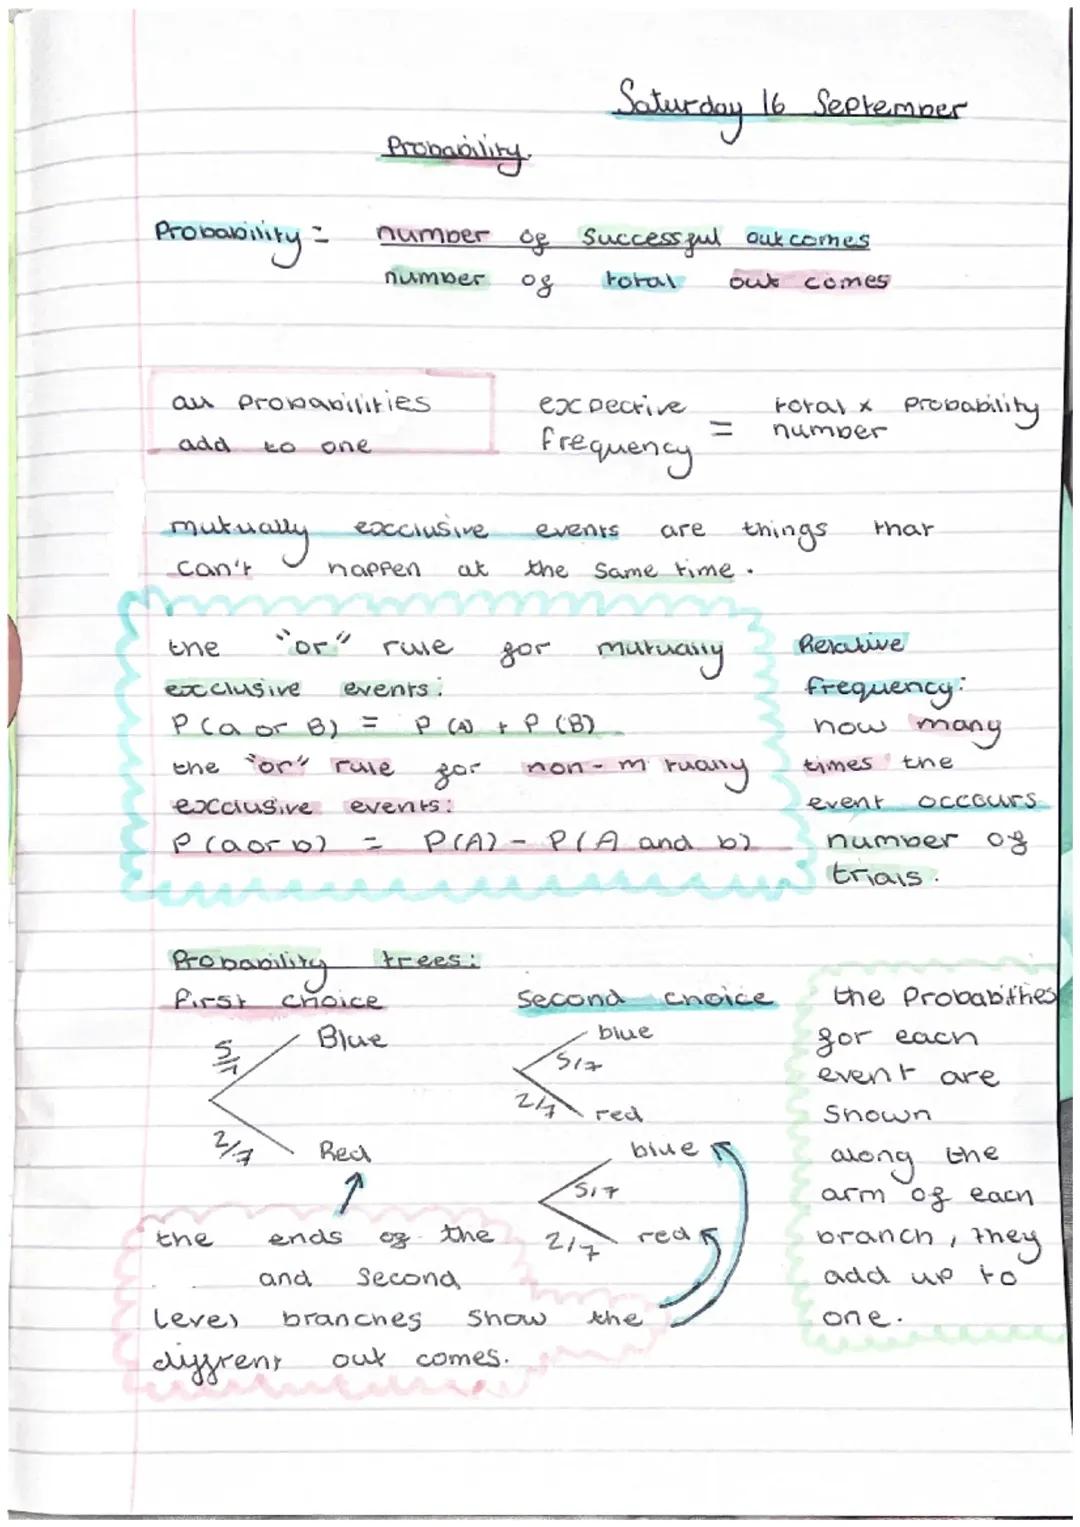 Saturday 16 September
Probability.
Probability = number of successful outcomes
number of total out comes
all probabilities
add to one
excpective
frequency
=
total x probability
number
mutually excclusive events are things that
can't happen at the same time.
the "or" rule for mutually
excclusive events:
P (a or B) = P (A) + P (B)
the "or" rule for non-m tuany
exccluusive events:
P (a or b) = P(A) - P(A and b)
Relative
frequency:
how many
times the
event occours
number of
trials.
Probability trees:
first choice
second choice
5/7
Blue
2/7
Red
blue
5/7
2/7
red
blue
5/7
2/7
red
the ends of the
and second
level branches show the
diffrent out comes.
the Probabities
for each
event are
shown
along the
arm of each
branch, they
add up to
one.